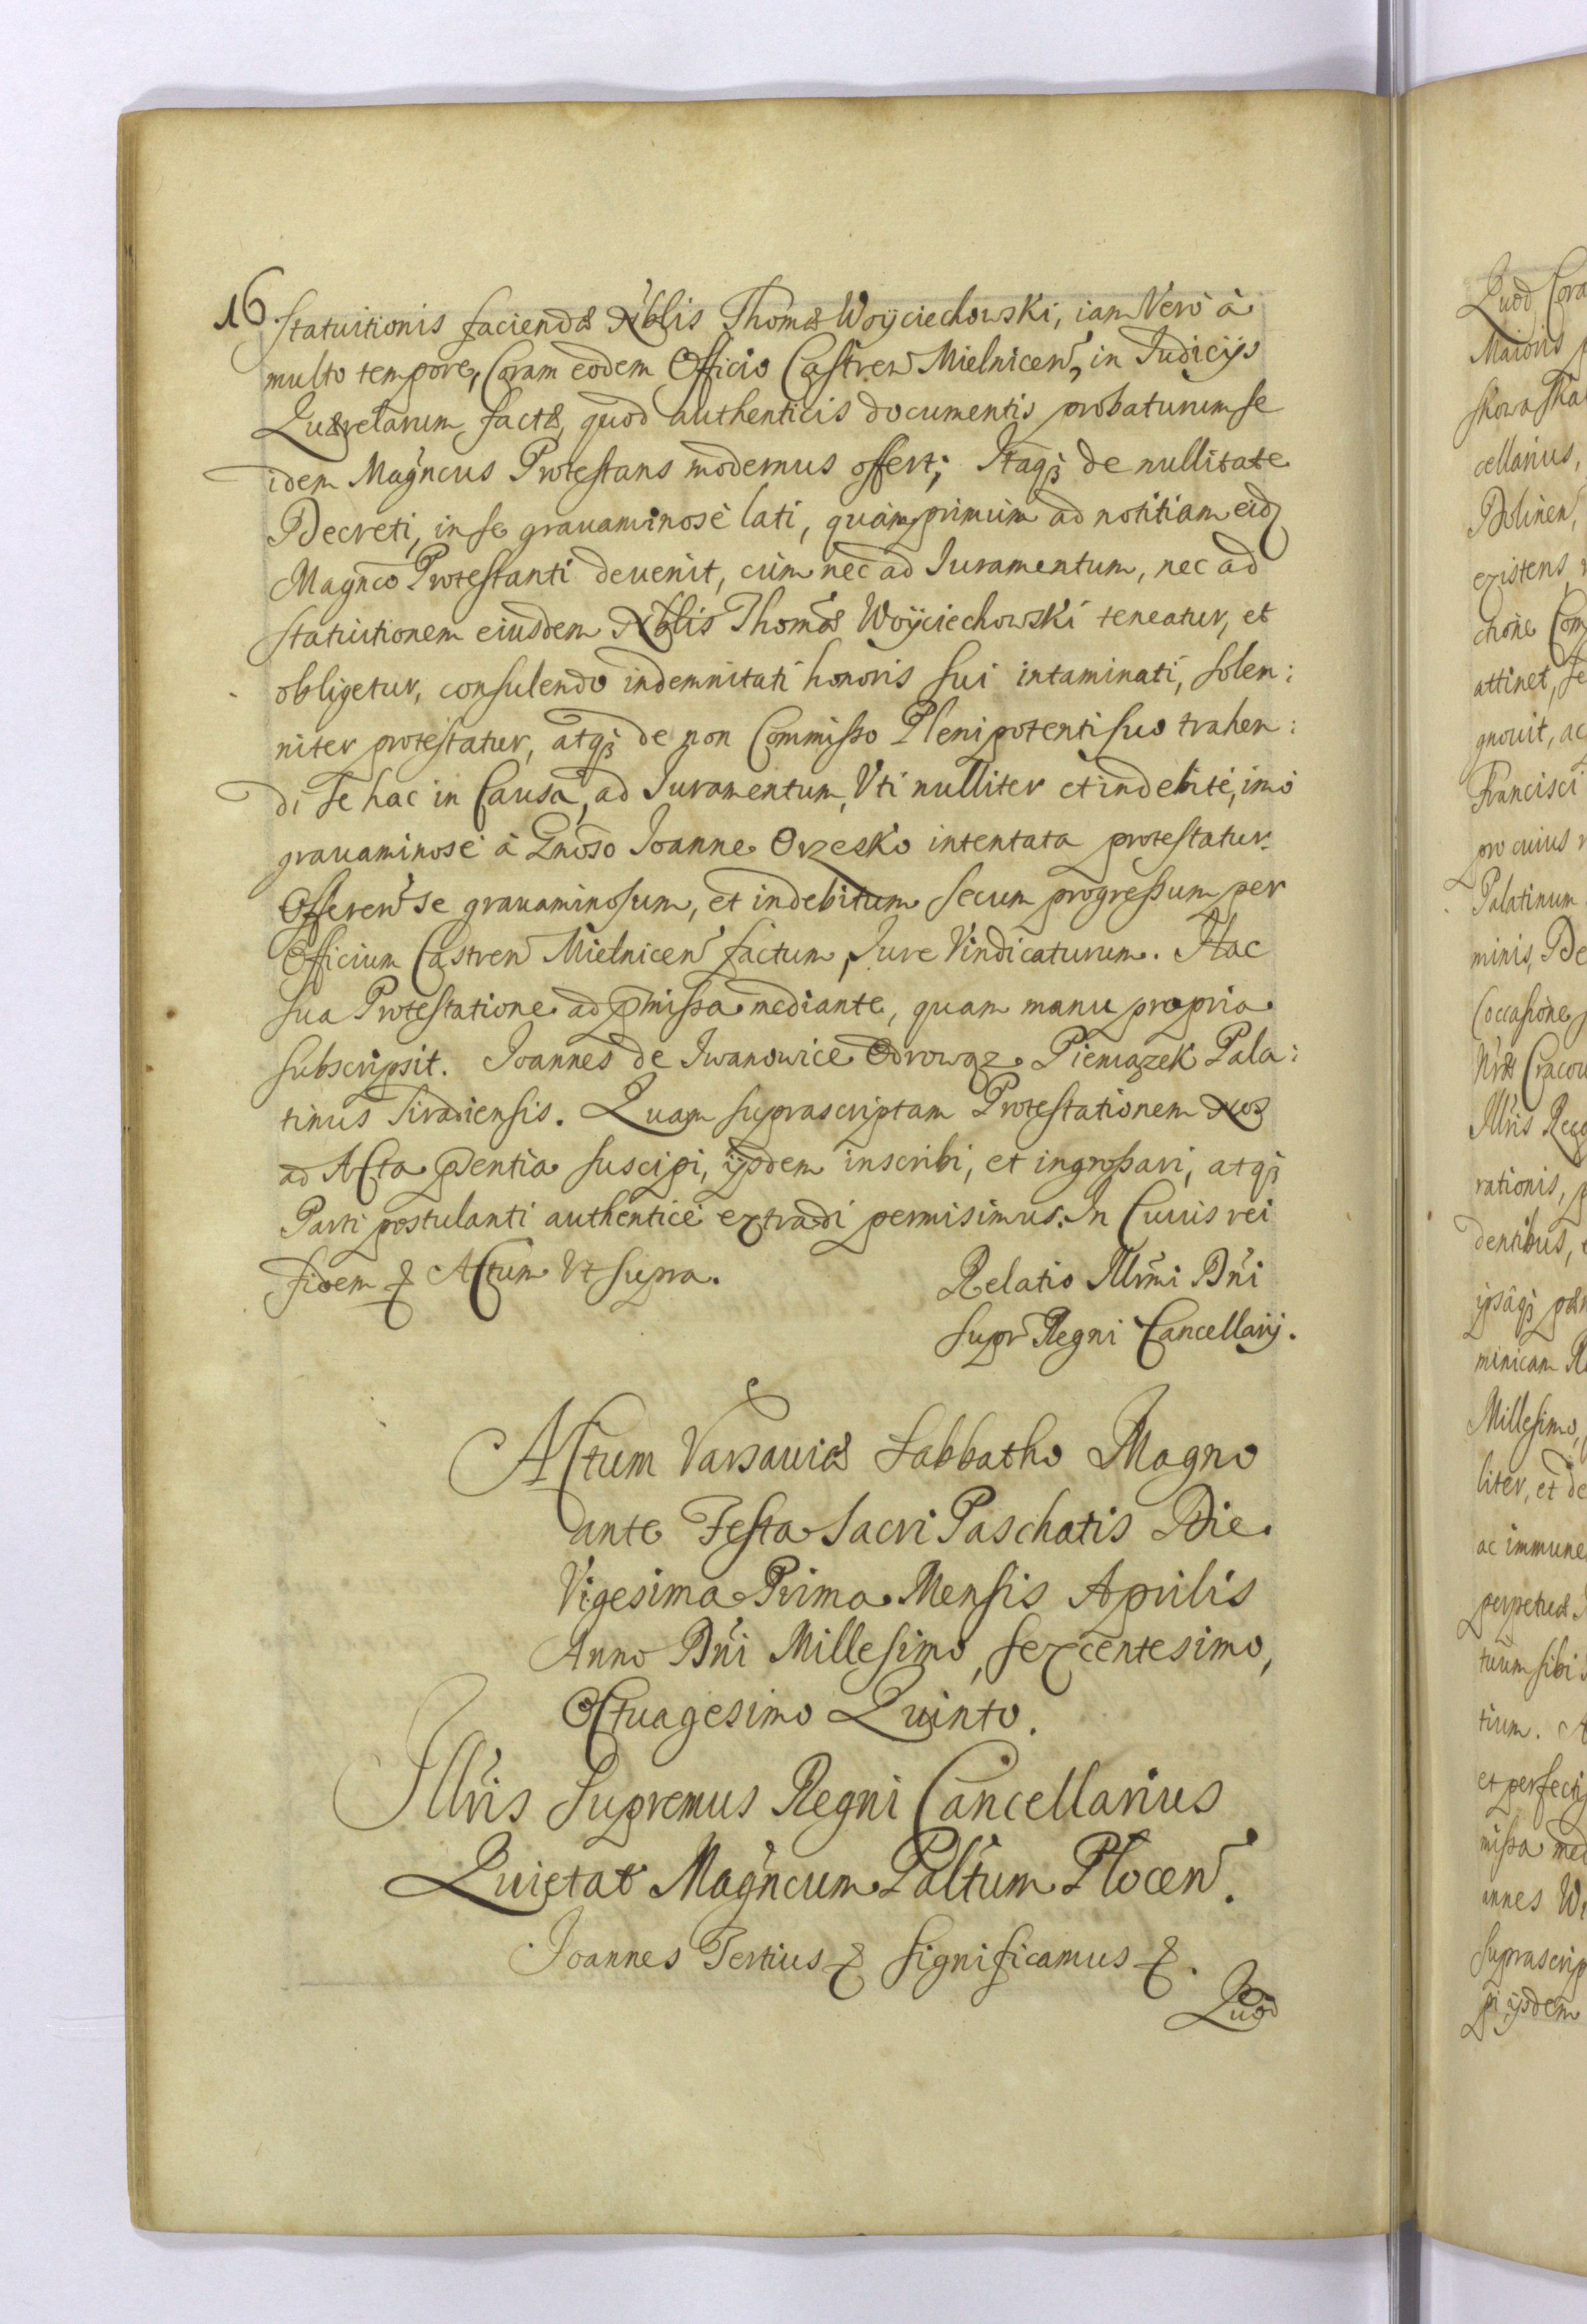 16
statuitionis faciendæ Nblis Thomæ Woyciechowski, iam Verò à
multo tempore, Coram eodem Officio Castren Mielnicen, in Iudicijs
Quærelarum factæ, quod authenticis documentis probaturum se
idem Magncus Protestans modernus offert; Itaqꝫ de nullitate
Decreti, in se grauaminosè lati, quàm primùm ad notitiam eidꝫ
Magnco Protestanti deuenit, cùm nec ad Iuramentum, nec ad
statuitionem eiusdem Nblis Thomæ Woyciechowski teneatur, et
obligetur, consulendo indemnitati honoris sui intaminati, solen:
niter protestatur, atqꝫ de non Commisso Plenipotenti suo trahen:
di se hac in Causa, ad Iuramentum, Vti nulliter et indebitè, imò
grauaminosè à Gnoso Ioanne Orzesko intentata protestatur.
Offeren se grauaminosum, et indebitum secum progressum per
Officium Castren Mielnicen factum, Iure Vindicaturum. Hac
sua Protestatione ad pmissa mediante, quam manu propria
subscripsit. Ioannes de Iwanowice Odrowąz Pieniązek Pala:
tinus Siradiensis. Quam suprascriptam Protestationem Nos
ad Acta psentia suscipi, ijsdem inscribi, et ingrossari, atqꝫ
Parti postulanti authenticè extradi permisimus. In Cuius rei
fidem & Actum Vt supra.
Relatio Illrmi Dni
supr Regni Cancellarij.
Actum Varsauiæ Sabbatho Magno
ante Festa Sacri Paschatis Die
Vigesima Prima Mensis Aprilis
Anno Dni Millesimo, sexcentesimo,
Octuagesimo Quinto.
Illris Supremus Regni Cancellarius
Quietat Magncum Paltum Plocen.
Ioannes Tertius & significamus &.
Quod
Quod Cora
Maioris
cellarius,
existens
ctione Com
attinet, se
gnouit, ac
Francisci
pro cuius
Palatinum
minis, De
(occasione
Nræ Cracou
Illris Reg
rationis,
dentibus,
minicam
Millesimo,
liter, et de
ac immune
perpetuæ
tuum sibi
tium. A
et perfecti
missa med
annes W
suprascrip
pi ijsdem